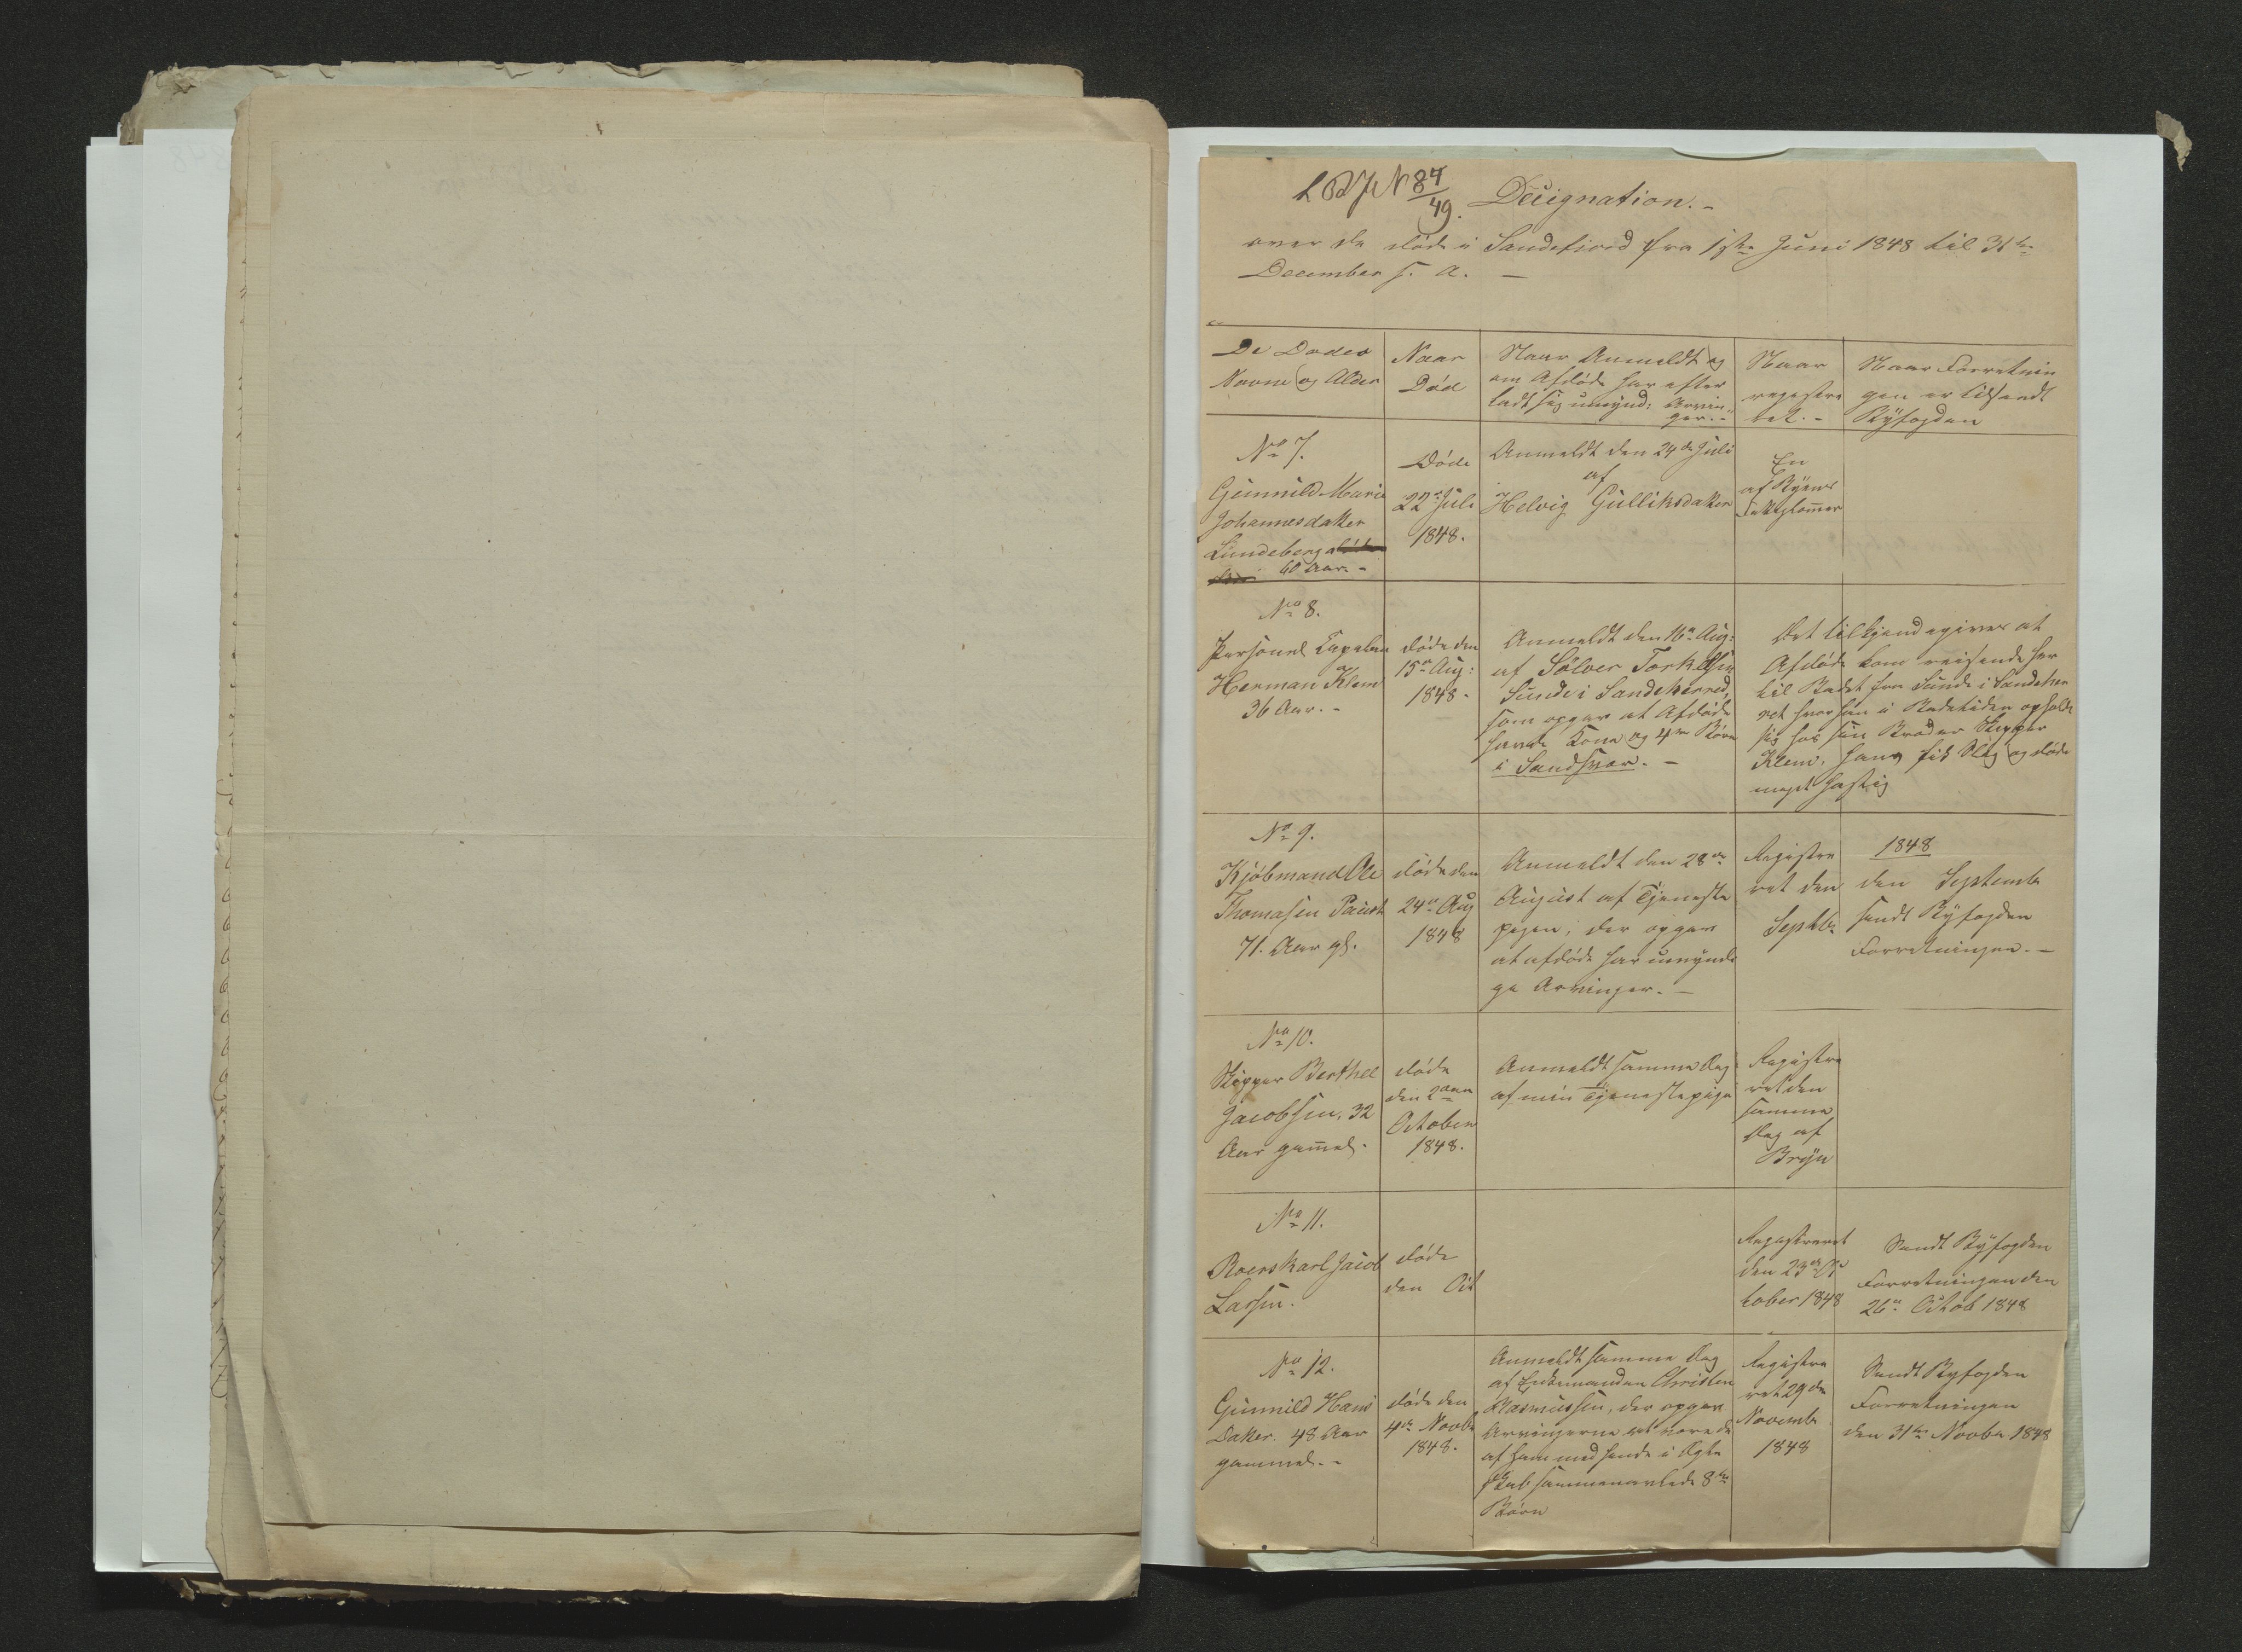 LBJN 84/49. Designation.-
over de døde i Sandefjord fra 1ste Juni 1848 til 31te
December s. a. -
De Dødes
Navne og Alder
Naar
Død
Naar Anmeldt og
om Afdøde har efter
ladt sig umynd: Arvin
ger.-
Naar
registre
ret.-
Naar Forretnin
gen er tilsendt
Byfogden
No 7.
Gunnild Marie
Johannesdatter
Lundeberg
60 Aar.-
Døde
22de Juli
1848.
Anmeldt den 24de Juli
af
Helvig Gulliksdatter
En
af Byens
Fattiglemmer
No 8.
Personel Capelan
Herman Klem
36 Aar.-
døde den
15de Aug:
1848.
Anmeldt den 16de Aug:
af Sølver Torkelsen
Sunde i Sandeherred,
som opgav at Afdøde
havde Kone og 4re Børn
i Sandsvær.-
Det tilkjendegives at
Afdøde kom reisende her
til Stedet fra Sunde i Sandeher
ret hvor han i Badetiden opholdt
sig hos sin Broder Skipper
Klem, han fik Slag og døde
meget hastig
No 9.
Kjøbmand Ole
Thomasen Paust
71. Aar gl.
døde den
24de Aug
1848
Anmeldt den 28de
August af Tjeneste
pigen, der opgav
at afdøde har umyndi
ge Arvinger.-
Registre
ret den
Septbr
1848
den Septembr
sendt Byfogden
Forretningen.-
No 10.
Skipper Berthel
Jacobsen, 32
Aar gammel.
døde
den 2den
October
1848.
Anmeldt samme Dag
af min Tjenestepige
Registre
ret den
samme
Dag af
Bryn
No 11.
Roerskarl Jacob
Larsen.
døde
den Oct
Registreret
den 23de Oc
tober 1848
Sendt Byfogden
Forretningen den
26de Octob 1848
No 12.
Gunnild Hans
Datter. 48 Aar
gammel.-
døde den
4de Novbr
1848.
Anmeldt samme Dag
af Enkemanden Christen
Rasmussen, der opgav
Arvingerne at være de
af ham med hende i Ægte
skab sammenavlede 8te
Børn
Registre
ret 29de
Novembr
1848
Sendt Byfogden
Forretningen
den 31te Novbr 1848